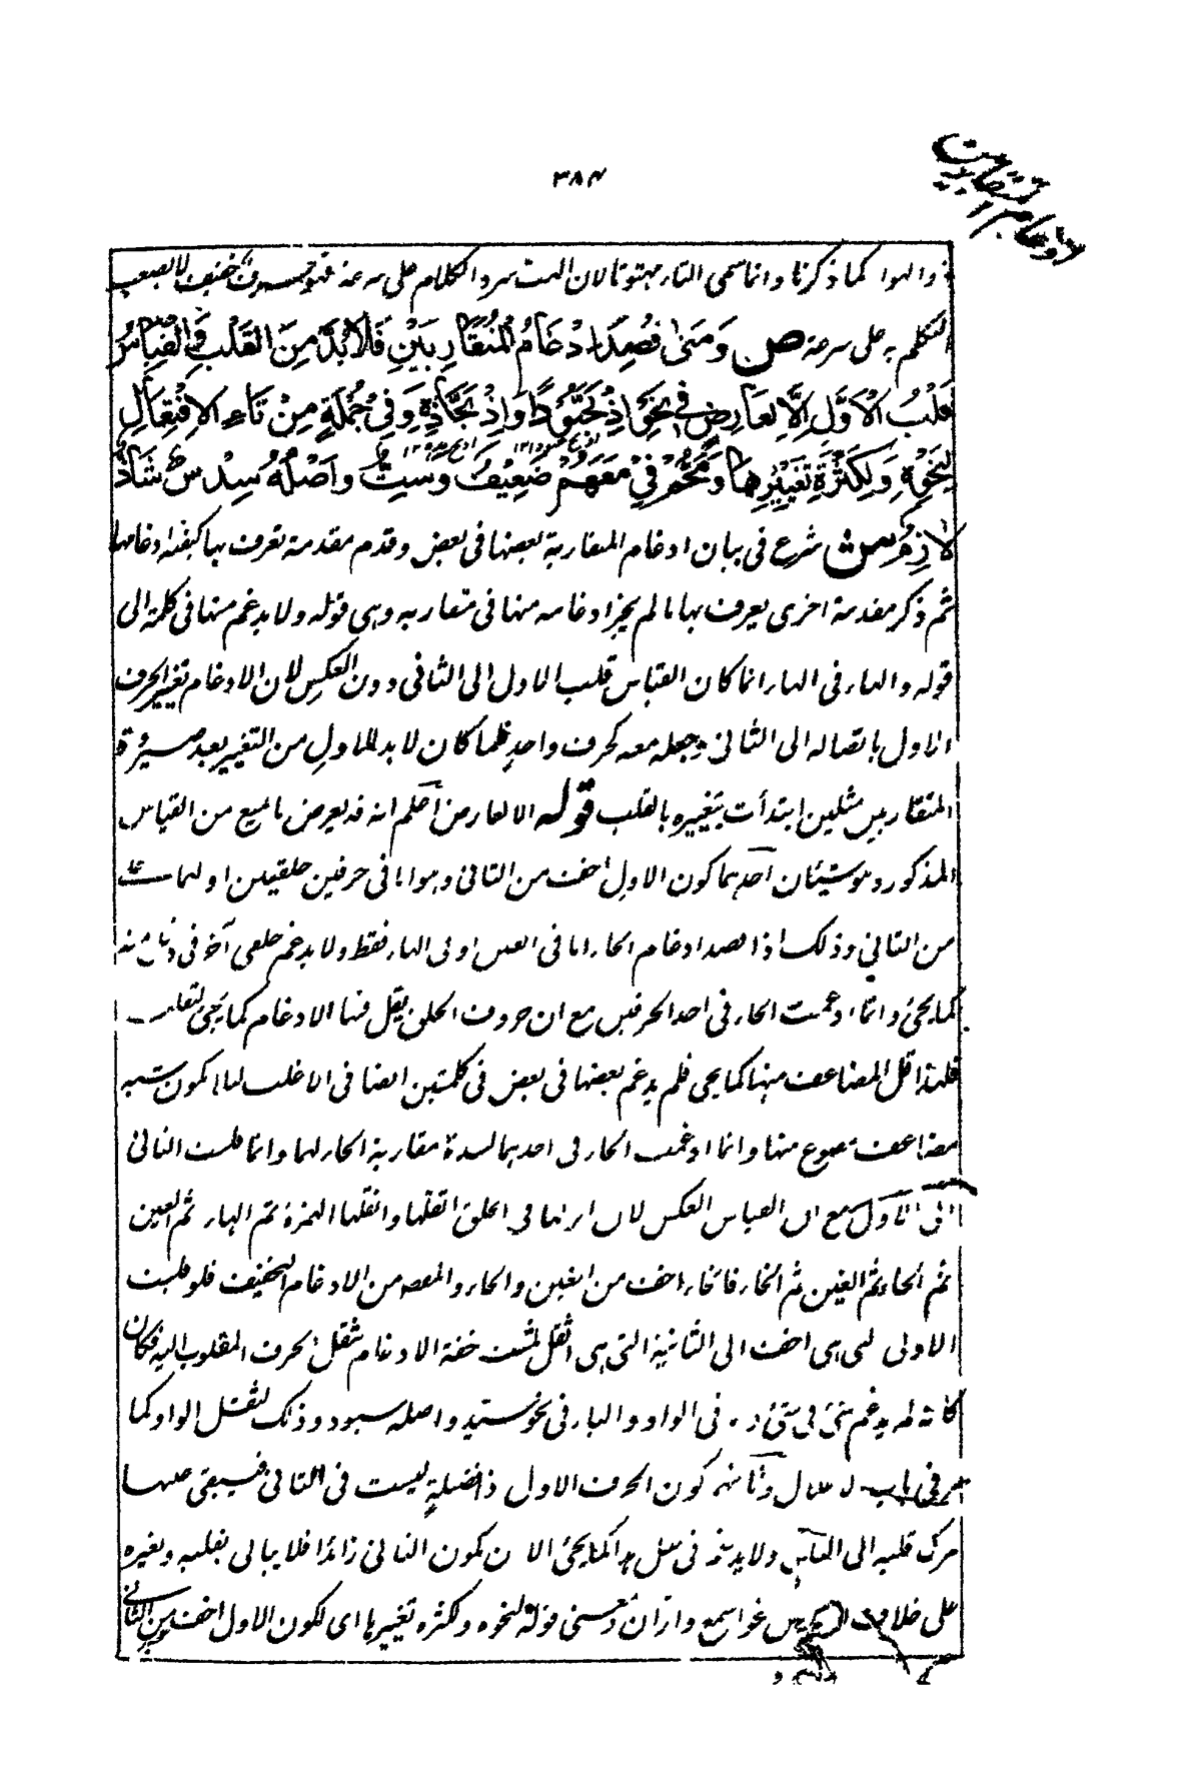 ٣٨٤
ادغام المتقاربين
والهواء كما ذكرنا وانما سمى التاء مهتوتا لان الهت سرد الكلام على سرعة فهو حرف خفيف لا يصعب
التكلم به على سرعة ص وَمَتىٰ قُصِدَ اِدْغَامُ الْمُتَقَارِبَيْنِ فَلَا بُدَّ مِنَ القَلْبِ وَالْقِيَاسُ
قَلْبُ الْاَوَّلِ اِلَّا لِعَارِضٍ فِي نَحْوِ اِذْبَحَّتُّوْدًا وَاِذْبَحَّاذِهِ وَفِيْ جُمْلَةٍ مِنْ تَاءِ الاِفْتِعَالِ
لِنَحْوِهِ وَلِكَثْرَةِ تَغَيُّرِهَا وَمَحُّمْ فِيْ مَعَهُمْ ضَعِيْفٌ وَسِتٌّ وَاَصْلُهُ سِدْسٌ شَاذٌّ
لَازِمٌ ش شرع فى بيان ادغام المتقاربة بعضها فى بعض وقدم مقدمة تعرف بها كيفية ادغامها
ثم ذكر مقدمة اخرى يعرف بها ما لم يجز ادغامه منها فى متقاربه وهى قوله ولا يدغم منها فى كلمة الى
قوله والهاء فى الهاء انما كان القياس قلب الاول الى الثانى دون العكس لان الادغام تغيير الحرف
الاول باتصاله الى الثانى وجعله معه كحرف واحد فلما كان لا بد للاول من التغيير بعد صيرورة
المتقاربين مثلين ابتدأت بتغييره بالقلب قوله الا لعارض اعلم انه قد يعرض ما يمنع من القياس
المذكور وهو شيئان احدهما كون الاول اخف من الثانى وهو اما فى حرفين حلقيين اولهما اعلى
من الثانى وذلك اذا قصد ادغام الحاء اما فى العين او فى الهاء فقط ولا يدغم حلقى آخر فى
كما يجئ وانما ادغمت الحاء فى احد الحرفين مع ان حروف الحلق يقل فيها الادغام كما يجئ لثقلها
فلهذا قل المضاعف منها كما يجئ فلم يدغم بعضها فى بعض فى كلمتين ايضا فى الاغلب لئلا يكون شبه
مضاعف مصوغ منها وانما ادغمت الحاء فى احدهما لشدة مقاربة الحاء لهما وانما قلبت الثانى
الى الاول مع ان القياس العكس لان انزلها فى الحلق اثقلها واثقلها الهمزة ثم الهاء ثم العين
ثم الحاء ثم الغين ثم الخاء فالخاء اخف من الغين والحاء والمقصود من الادغام التخفيف فلو قلبت
الاولى التى هى اخف الى الثانية التى هى اثقل لمشت خفة الادغام بثقل الحرف المقلوب اليه فكان
كانه لم يدغم شئ فى شئ فى الواو والياء فى نحو سيد واصله سيود وذلك لثقل الواو كما
مر فى باب وثانيهما كون الحرف الاول ذا فضلة ليست فى الثانى فيبقى عليها
بترك قلبه الى الثانى ولا يدغم فى مثل هذا كما يجئ الا ان يكون الثانى زائدا فلا يبالى بقلبه وتغييره
على خلاف القياس نحو اسمع وازان ومعنى قوله لنحوه ولكثرة تغيرها اى لكون الاول اخف من الثانى